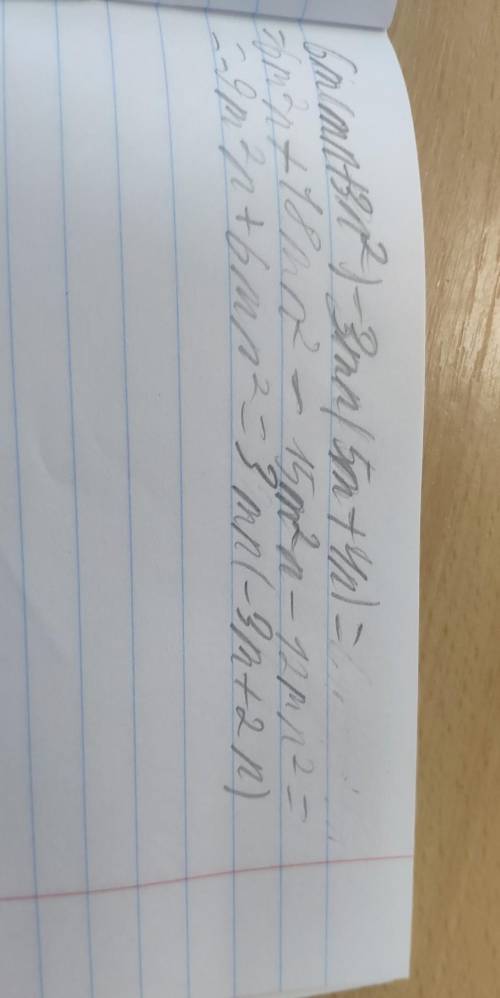 6m(mn+3n²)-3mn(5m+4n)=
=6m²n+18mn²-15m²n-12mn²=
=-9m²n+6mn²=3mn(-3m+2n)